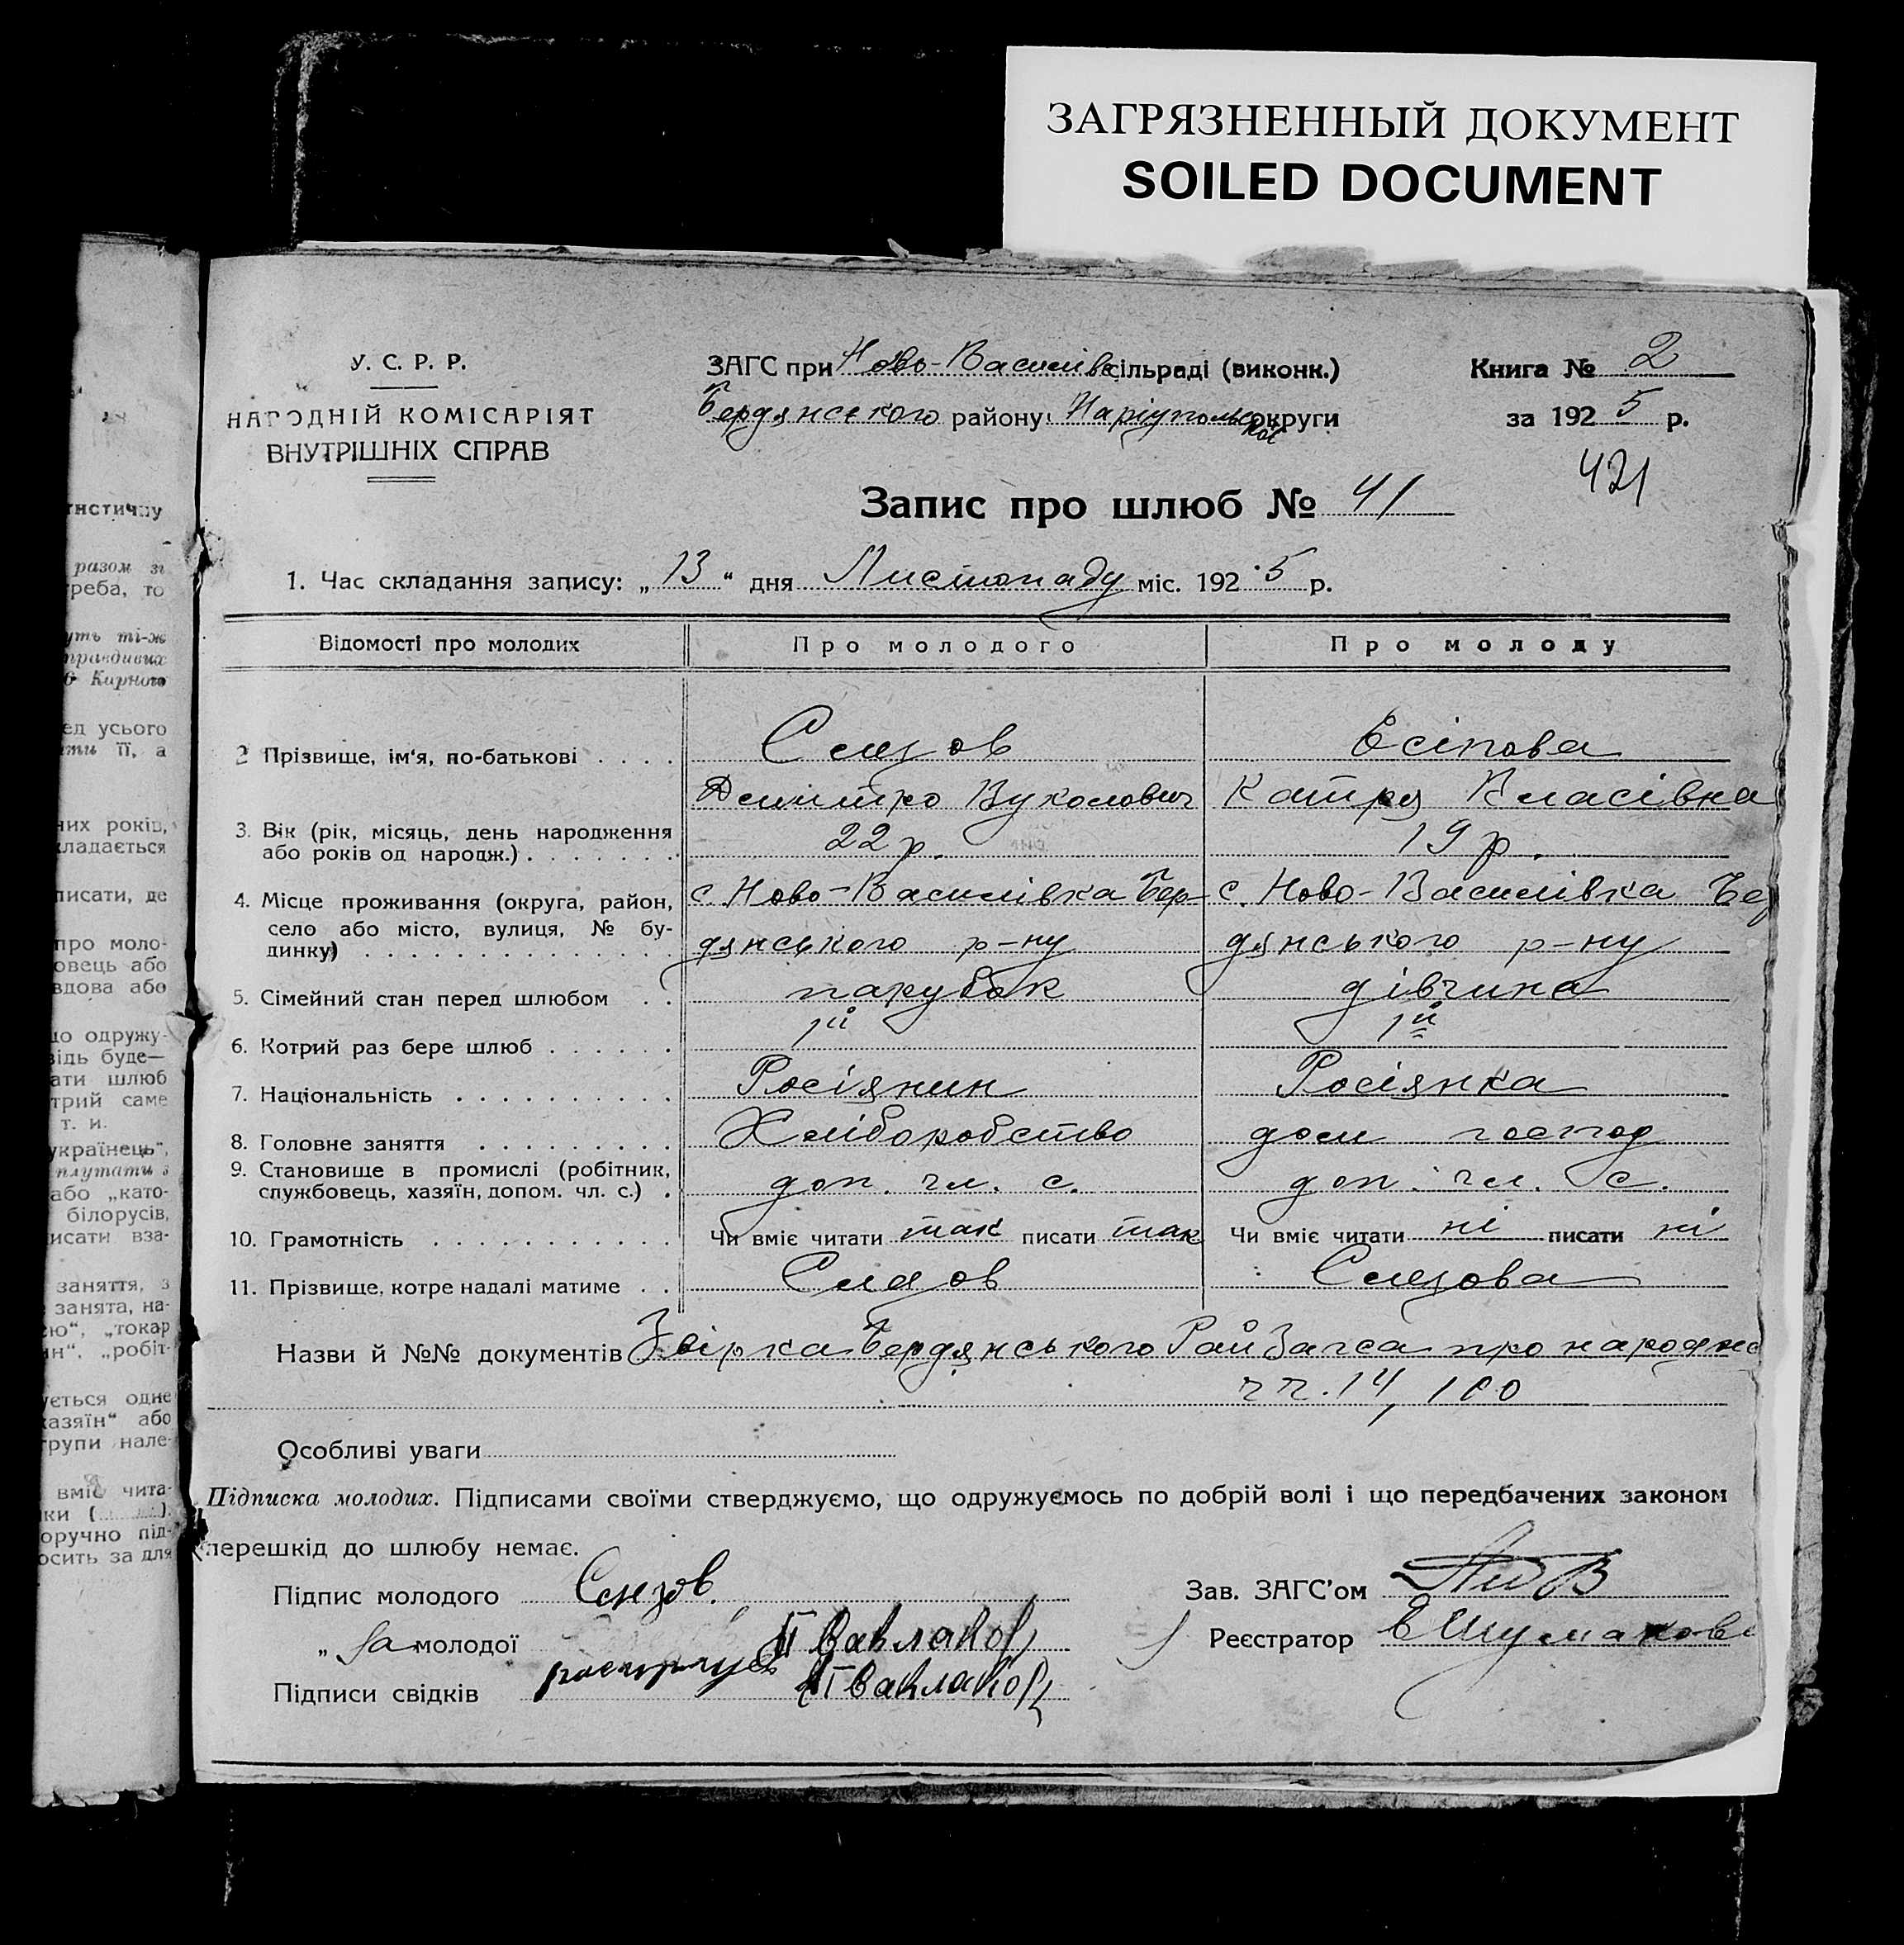 ЗАГРЯЗНЕННЫЙ ДОКУМЕНТ
SOILED DOCUMENT
У. С. Р. Р.
НАРОДНІЙ КОМІСАРІЯТ
ВНУТРІШНІХ СПРАВ
ЗАГС при Ново-Василівс сільраді (виконк.)
Бердянського району Маріупольської округи
Книга № 2
за 1925 р.
421
Запис про шлюб № 41
1. Час складання запису: „13“ дня Листопаду міс. 1925 р.
Відомості про молодих Про молодого Про молоду
2 Прізвище, ім'я, по-батькові . . . . Слезов Есіпова
Демитро Вуколович Катря Власівна
3. Вік (рік, місяць, день народження або років од народж.) . . . . . . . 22 р. 19 р.
4. Місце проживання (округа, район, с. Ново-Василівка Бер- с. Ново-Василівка Бер
село або місто, вулиця, № бу-
динку) . . . . . . . . . . . . . . дянського р-ну дянського р-ну
5. Сімейний стан перед шлюбом . . парубок дівчина
6. Котрий раз бере шлюб . . . . . . 1й 1й
7. Національність . . . . . . . . . . Росіянин Росіянка
8. Головне заняття . . . . . . . . . Хліборобство дом господ
9. Становище в промислі (робітник,
службовець, хазяїн, допом. чл. с.) . доп. чл. с. доп. чл. с.
10. Грамотність . . . . . . . . . . . Чи вміє читати так писати так Чи вміє читати ні писати ні
11. Прізвище, котре надалі матиме . . Слезов Слезова
Назви й №№ документів Звірка Бердянського РайЗагса про народжен
чч. 14, 100
Особливі уваги
Підписка молодих. Підписами своїми стверджуємо, що одружуємось по добрій волі і що передбачених законом
перешкід до шлюбу немає.
Підпис молодого Слезов.
Зав. ЗАГС'ом
„ За молодої
Реєстратор Е Шумакова
Підписи свідків
тистичну
разом зі
треба, то
уть ті-ж
правдивих
Карного
ед усього
ати її, а
них років,
складається
писати, де
про моло-
овець або
вдова або
що одружу-
відь буде—
ати шлюб
трий саме
т. и.
українець“,
плутати з
або „като-
білорусів,
исати вза-
заняття, з
занята, на-
ею“, „токар
ин“, „робіт-
ується одне
хазяїн“ або
групи нале-
вміє чита-
ки (. . .).
оручно під-
осить за для